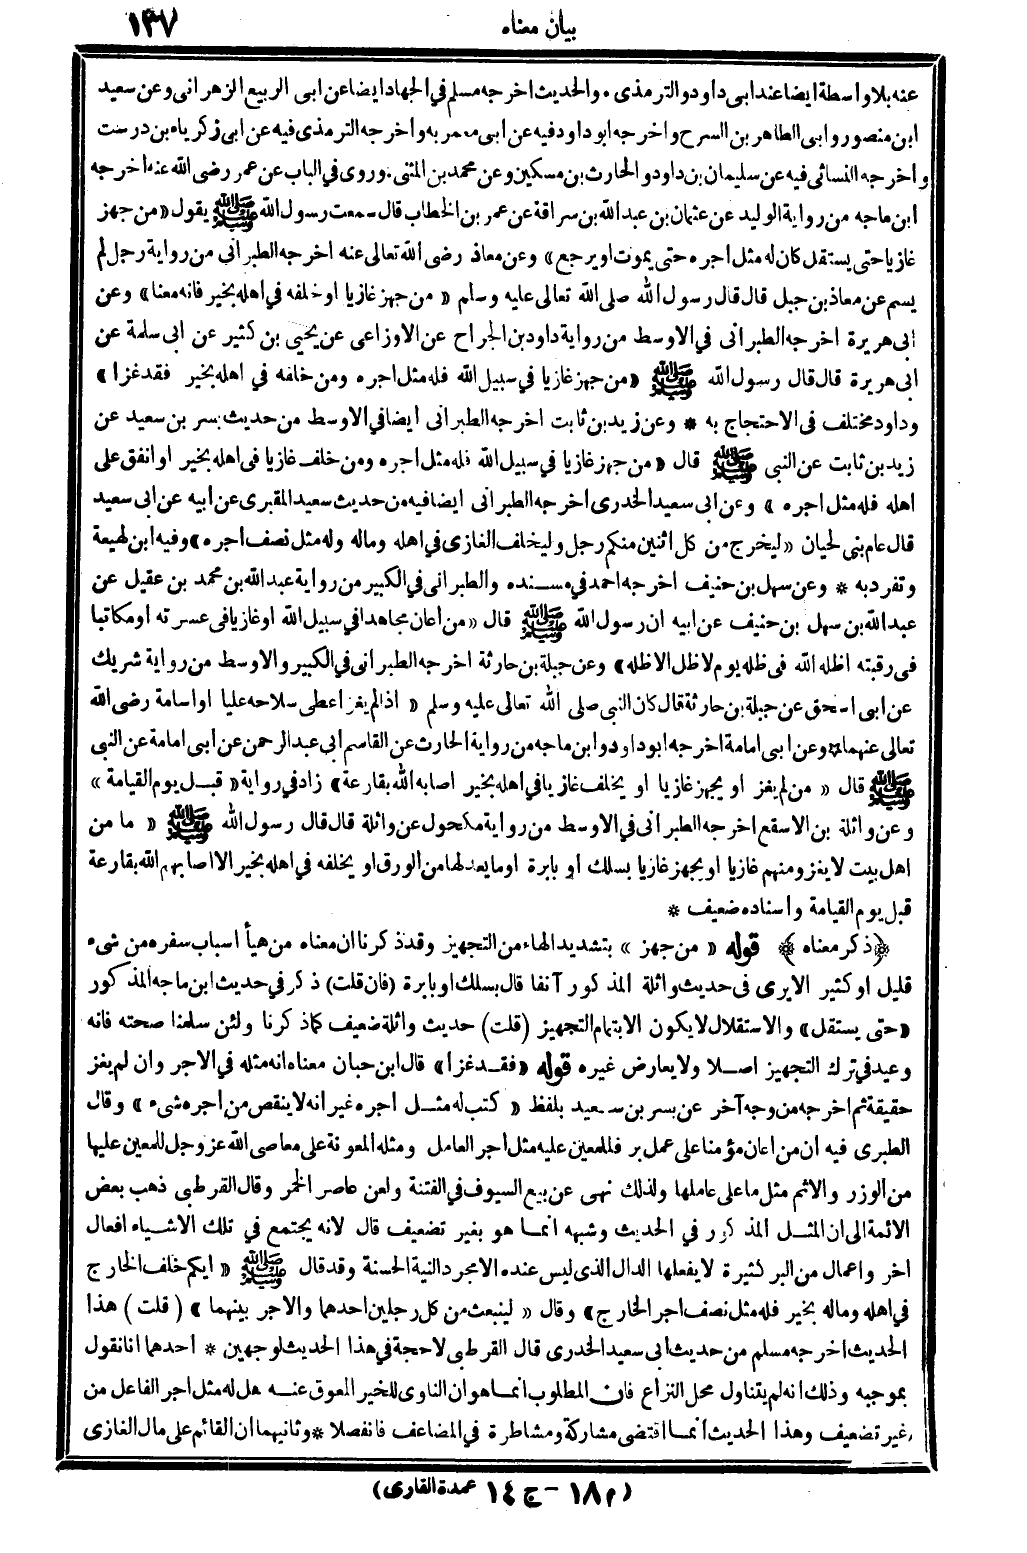 بيان معناه ١٣٧
عنه بلا واسطة ايضا عند ابى داود والترمذى ، والحديث اخرجه مسلم في الجهاد ايضا عن ابى الربيع الزهرانى وعن سعيد
ابن منصور وابى الطاهر بن السرح واخرجه ابو داود فيه عن ابى معمر به واخرجه الترمذى فيه عن ابى زكرياء بن درست
واخرجه النسائى فيه عن سليمان بن داود والحارث بن مسكين وعن محمد بن المثنى . وروى في الباب عن عمر رضى الله عنه اخرجه
ابن ماجه من رواية الوليد عن عثمان بن عبد الله بن سراقة عن عمر بن الخطاب قال سمعت رسول الله ﷺ يقول «من جهز
غازيا حتى يستقل كان له مثل اجره حتى يموت او يرجع» وعن معاذ رضى الله تعالى عنه اخرجه الطبرانى من رواية رجل لم
يسم عن معاذ بن جبل قال قال رسول الله صلى الله تعالى عليه وسلم « من جهز غازيا او خلفه في اهله بخير فانه معنا » وعن
ابى هريرة اخرجه الطبرانى في الاوسط من رواية داود بن الجراح عن الاوزاعى عن يحيى بن كثير عن ابى سلمة عن
ابى هريرة قال قال رسول الله ﷺ «من جهز غازيا في سبيل الله فله مثل اجره ومن خلفه في اهله بخير فقد غزا»
وداود مختلف فى الاحتجاج به * وعن زيد بن ثابت اخرجه الطبرانى ايضا في الاوسط من حديث بسر بن سعيد عن
زيد بن ثابت عن النبى ﷺ قال « من جهز غازيا في سبيل الله فله مثل اجره ومن خلف غازيا فى اهله بخير او انفق على
اهله فله مثل اجره » وعن ابى سعيد الخدرى اخرجه الطبرانى ايضا فيه من حديث سعيد المقبرى عن ابيه عن ابى سعيد
قال عام بنى لحيان « ليخرج من كل اثنين منكم رجل وليخلف الغازى في اهله وماله وله مثل نصف اجره » وفيه ابن لهيعة
وتفرد به * وعن سهل بن حنيف اخرجه احمد في مسنده والطبرانى في الكبير من رواية عبد الله بن محمد بن عقيل عن
عبد الله بن سهل بن حنيف عن ابيه ان رسول الله ﷺ قال « من أعان مجاهدا في سبيل الله او غازيا فى عسرته او مكاتبا
فى رقبته اظله الله فى ظله يوم لا ظل الا ظله» وعن جبلة بن حارثة اخرجه الطبرانى في الكبير والاوسط من رواية شريك
عن ابى اسحق عن جبلة بن حارثة قال كان النبى صلى الله تعالى عليه وسلم « اذا لم يغز اعطى سلاحه عليا او اسامة رضى الله
تعالى عنهما * وعن ابى امامة اخرجه ابو داود وابن ماجه من رواية الحارث عن القاسم أبى عبد الرحمن عن ابى امامة عن النبى
ﷺ قال « من لم يغز او يجهز غازيا او يخلف غازيا في اهله بخير اصابه الله بقارعة» زاد في رواية « قبل يوم القيامة »
وعن واثلة بن الاسقع اخرجه الطبرانى في الاوسط من رواية مكحول عن واثلة قال قال رسول الله ﷺ « ما من
اهل بيت لا يغزو منهم غازيا او يجهز غازيا بسلك أو بابرة او ما يعدلها من الورق او يخلفه في اهله بخير الا اصابهم الله بقارعة
قبل يوم القيامة واسناده ضعيف *
﴿ذكر معناه﴾ قوله « من جهز » بتشديد الهاء من التجهيز وقد ذكرنا ان معناه من هيأ اسباب سفره من شىء
قليل او كثير الا يرى فى حديث واثلة المذكور آنفا قال بسلك او بابرة (فان قلت) ذكر في حديث ابن ماجه المذكور
«حتى يستقل» والاستقلال لا يكون الا بتمام التجهيز (قلت) حديث واثلة ضعيف كما ذكرنا ولئن سلمنا صحته فانه
وعيد في ترك التجهيز اصلا ولا يعارض غيره قوله «فقد غزا» قال ابن حبان معناه انه مثله في الاجر وان لم يغز
حقيقة ثم اخرجه من وجه آخر عن بسر بن سعيد بلفظ « كتب له مثل اجره غير انه لا ينقص من اجره شىء » وقال
الطبرى فيه أن من اعان مؤمنا على عمل بر فللمعين عليه مثل أجر العامل ومثله المعونة على معاصى الله عز وجل للمعين عليها
من الوزر والاثم مثل ما على عاملها ولذلك نهى عن بيع السيوف في الفتنة ولعن عاصر الخمر وقال القرطبى ذهب بعض
الائمة الى ان المثل المذكور في الحديث وشبهه انما هو بغير تضعيف قال لانه يجتمع في تلك الاشياء افعال
اخر واعمال من البر كثيرة لا يفعلها الدال الذى ليس عنده الا مجرد النية الحسنة وقد قال ﷺ « ايكم خلف الخارج
في اهله وماله بخير فله مثل نصف اجر الخارج» وقال « لينبعث من كل رجلين احدهما والاجر بينهما » (قلت) هذا
الحديث اخرجه مسلم من حديث أبى سعيد الخدرى قال القرطبى لا حجة في هذا الحديث لوجهين * احدهما انا نقول
بموجبه وذلك انه لم يتناول محل النزاع فان المطلوب انما هو ان الناوى للخير المعوق عنه هل له مثل اجر الفاعل من
غير تضعيف وهذا الحديث انما اقتضى مشاركة ومشاطرة في المضاعف فانفصلا * وثانيهما أن القائم على مال الغازى
(م ١٨ - ج ١٤ عمدة القارى)